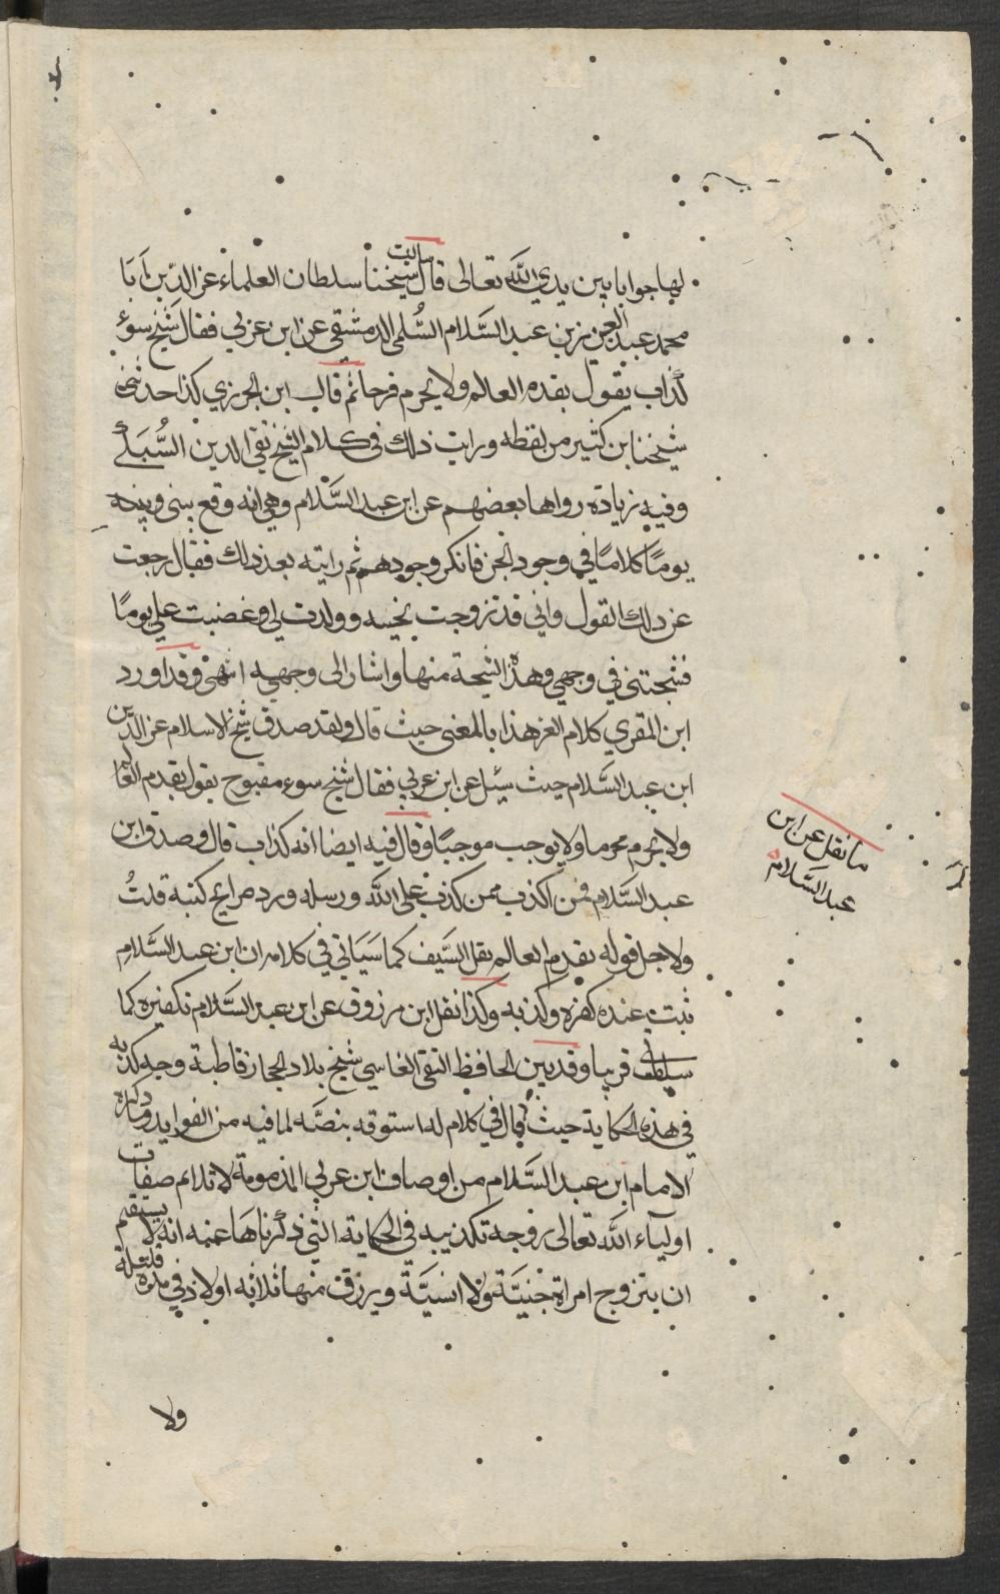 لها جوابا بين يدي الله تعالى قال سالت شيخنا سلطان العلماء عز الدين ابا
محمد عبد العزيز بن عبد السلام السلمي الدمشقي عن ابن عربي فقال شيخ سوء
كذاب يقول بقدم العالم ولا يحرم فرجا ثم قال ابن الجزري كذا حدثني
شيخنا ابن كثير من لفظه ورايت ذلك في كلام الشيخ تقي الدين السبكي
وفيه زيادة رواها بعضهم عن ابن عبد السلام وهي انه وقع بيني وبينه
يوما كلاما في وجود الجن فانكر وجودهم ثم رايته بعد ذلك فقال رجعت
عن ذلك القول واني قد تزوجت بجنيه وولدت لي وغضبت علي يوما
فشجتني في وجهي وهذه الشجة منها واشار الى وجهه انتهى وقد اورد
ابن المقري كلام العز هذا بالمعنى حيث قال ولقد صدق شيخ الاسلام عز الدين
ابن عبد السلام حيث سئل عن ابن عربي فقال شيخ سوء مقبوح يقول بقدم العالم
ولا يحرم محرما ولا يوجب موجبا وقال فيه ايضا انه كذاب قال وصدق ابن
عبد السلام فمن اكذب ممن كذب على الله ورسله ورد صرايح كتبه قلت
ولاجل قوله بقدم العالم نقل السيف كما سياتي في كلامه ان ابن عبد السلام
ثبت عنده كفره وكذبه وكذا نقل ابن مرزوق عن ابن عبد السلام تكفيره كما
سياتي قريبا وقد بين الحافظ التقي الفاسي شيخ بلاد الحجاز قاطبة وجه كذبه
في هذه الحكاية حيث قال في كلام له استوقه بنصه لما فيه من الفوايد وذكره
الامام ابن عبد السلام من اوصاف ابن عربي المذمومة لا تلائم صفات
اولياء الله تعالى ووجه تكذيبه في الحكاية التي ذكرناها عنه انه لا يستقيم
ان يتزوج امراة جنية ولا انسية ويرزق منها ثلاثه اولاد في مدة قليلة
ولا
ما نقل عن ابن
عبد السلام